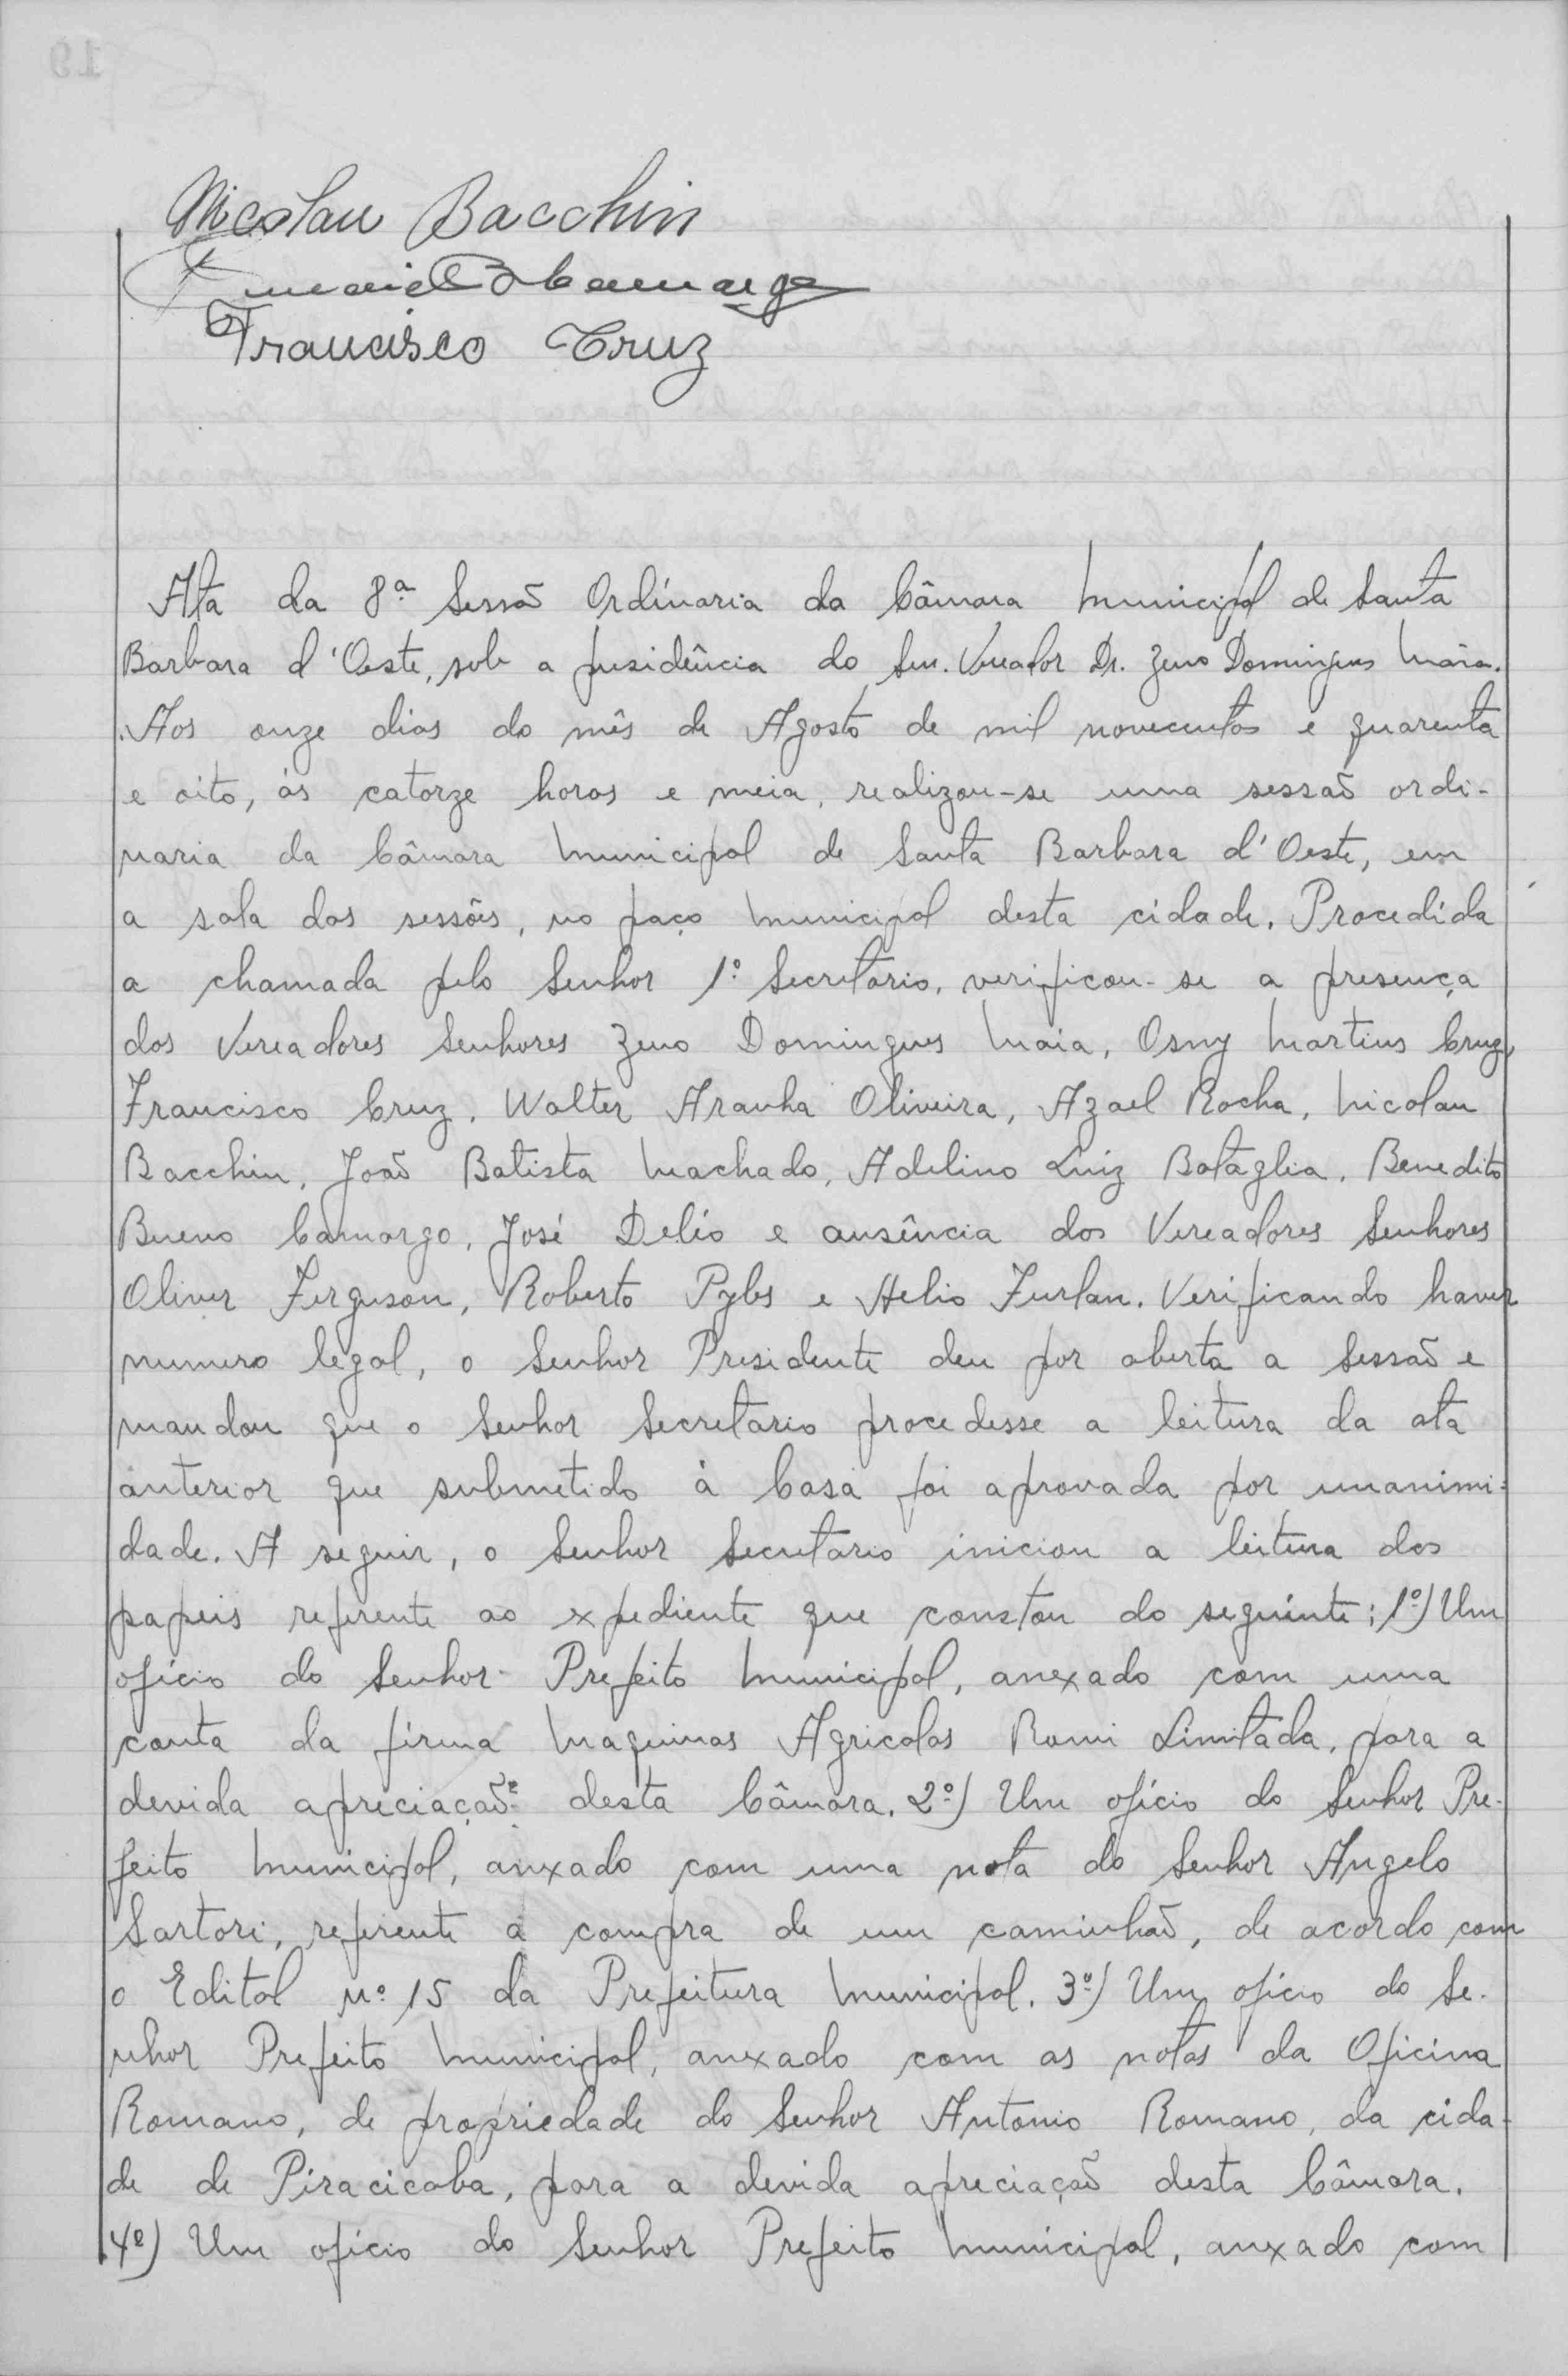 Nicolau Bacchin
Camargo
Francisco Cruz
Ata da 8ª Sessão Ordinaria da Câmara Municipal de Santa
Barbara d'Oeste, sob a presidência do Snr. Vereador Dr. Zeno Domingues Maia.
Aos onze dias do mês de Agosto de mil novecentos e quarenta
e oito, ás catorze horas e meia, realizou-se uma sessão ordi-
naria da Câmara Municipal de Santa Barbara d'Oeste, em
a sala das sessões, no paço Municipal desta cidade. Procedida
a chamada pelo Senhor 1º Secretario, verificou-se a presença
dos Vereadores Senhores Zeno Domingues Maia, Osny Martins Cruz,
Francisco Cruz, Walter Aranha Oliveira, Azael Rocha, Nicolau
Bacchin, João Batista Machado, Adelino Luiz Bataglia, Benedito
Bueno Camargo, José Delío e ausência dos Vereadores Senhores
Oliver Ferguson, Roberto Pyles e Helio Furlan. Verificando haver
numero legal, o Senhor Presidente deu por aberta a Sessão e
mandou que o Senhor Secretario procedesse a leitura da ata
anterior que submetido à Casa foi aprovada por unanimi-
dade. A seguir, o Senhor Secretario iniciou a leitura dos
papeis referente ao expediente que constou do seguinte: 1º) Um
oficio do Senhor Prefeito Municipal, anexado com uma
conta da firma Maquinas Agricolas Romi Limitada, para a
devida apreciação desta Câmara. 2º) Um oficio do Senhor Pre-
feito Municipal, anexado com uma nota do Senhor Angelo
Sartori, referente a compra de um caminhão, de acordo com
o Edital nº 15 da Prefeitura Municipal. 3º) Um oficio do Se-
nhor Prefeito Municipal, anexado com as notas da Oficina
Romano, de propriedade do Senhor Antonio Romano, da cida-
de de Piracicaba, para a devida apreciação desta Câmara.
4º) Um oficio do Senhor Prefeito Municipal, anexado com